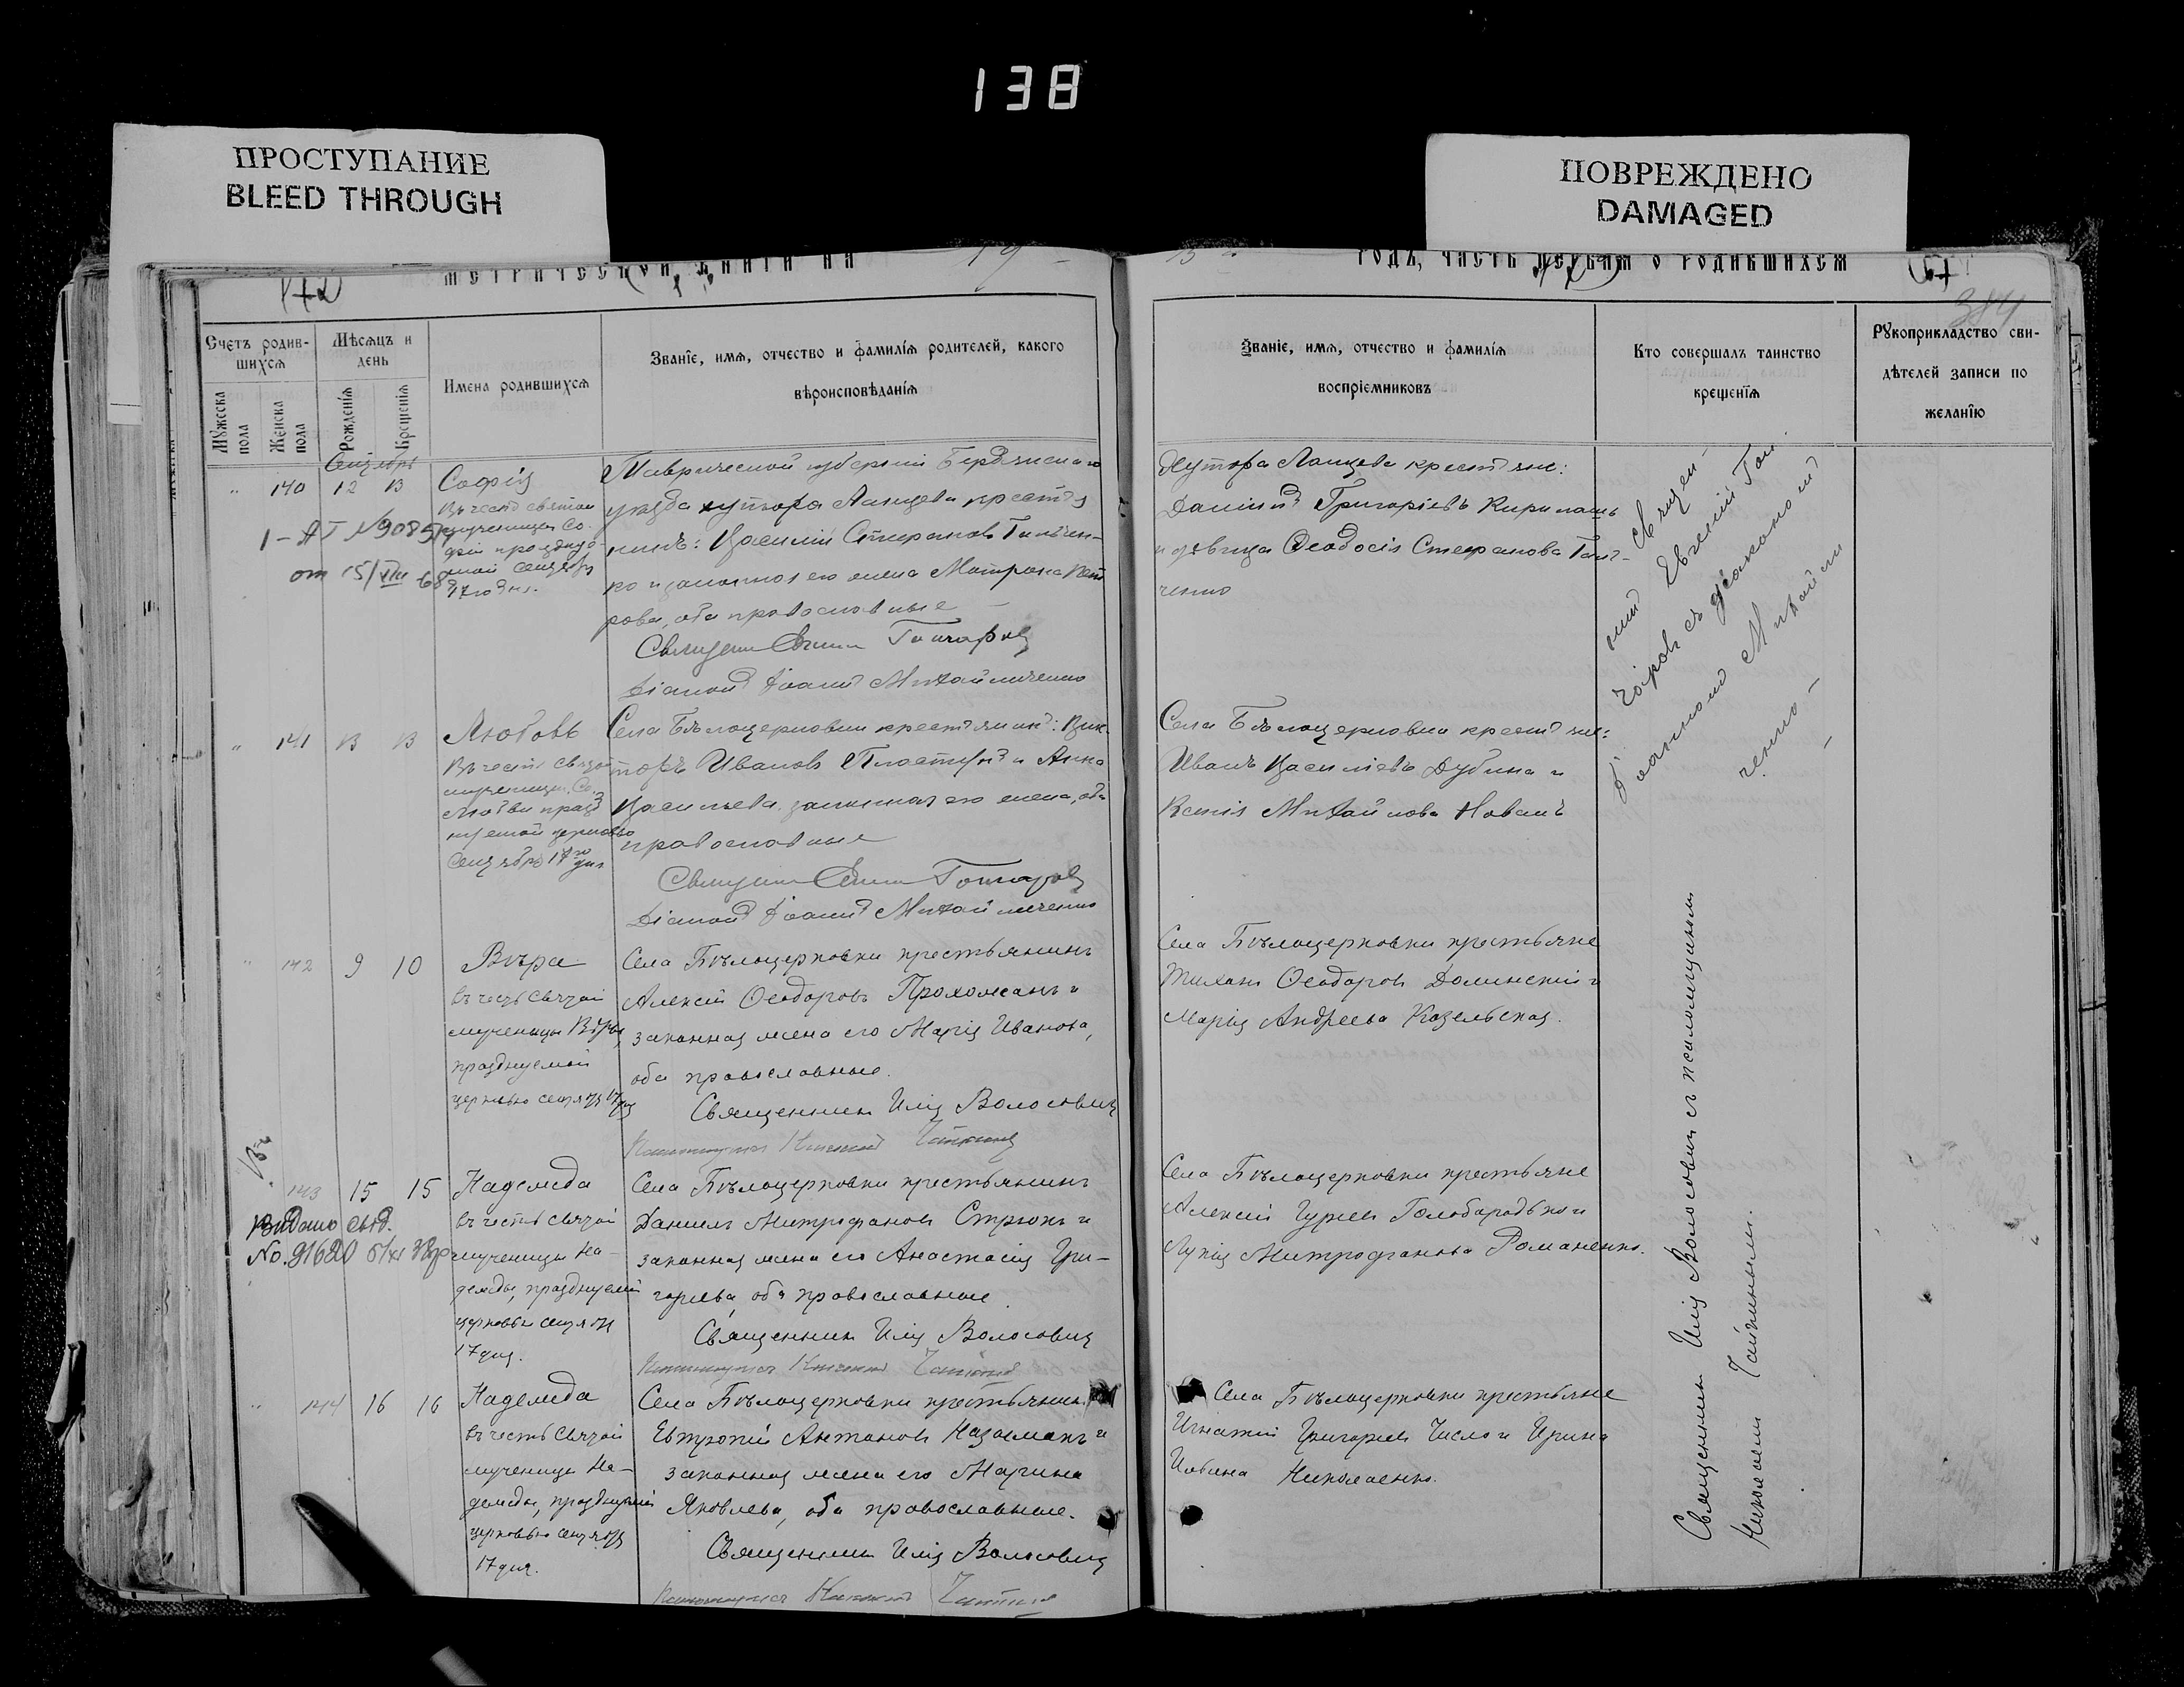 138
ПРОСТУПАНИЕ
BLEED THROUGH
ПОВРЕЖДЕНО
DAMAGED
МЕТРИЧЕСКОЙ КНИГИ НА 19
ГОДЪ, ЧАСТЬ ПЕРВАЯ О РОДИВШИХСЯ
384
Счетъ родив-
шихся
Мужеска
пола
Женска
пола
Мѣсяцъ и
день
Рожденія
Крещенія
Имена родившихся
Званіе, имя, отчество и фамилія родителей, какого
вѣроисповѣданія
Званіе, имя, отчество и фамилія
воспріемниковъ
Кто совершалъ таинство
крещенія
Рукоприкладство сви-
дѣтелей записи по
желанію
Сентябрь
140 12 13
Софія
въ честь святой
мученицы Со-
фіи празднуе-
мой Сентября
17го дня.
от 15/VIII 68
Таврической губерніи Бердянскаго
уѣзда хутора Ланцева крестья
нинъ: Василій Стефановъ
ко и законная его жена Матрона Пет
рова, оба православные
Священникъ Гончаровъ
Діаконъ Іоаннъ Михайличенко
Хутора Ланцева крестьяне:
Даніилъ Григорьевъ
и дѣвица Ѳеодосія Стефанова
ченко
Священ-
никъ Евгеній Гон
чаровъ съ діакономъ
Іоанномъ Михайли
ченко
141 13 13
Любовь
Въ честь святой
мученицы
Любви празд
нуемой церковью
Сентября 17го дня
Села Бѣлоцерковки крестьянинъ: Вик
торъ Ивановъ и Анна
Васильева, законная его жена, оба
православные
Священникъ Гончаровъ
Діаконъ Іоаннъ Михайличенко
Села Бѣлоцерковки крестьяне:
Иванъ Васильевъ Дубина и
Ксенія Михайлова Новакъ
142 9 10
Вѣра
въ честь святой
мученицы Вѣры,
празднуемой
церковью сентября 17 дня
Села Бѣлоцерковки крестьянинъ
Алексій Ѳеодоровъ Прохожанъ и
законная жена его Марія Иванова,
оба православные.
Священникъ Илія Волосовичъ
Села Бѣлоцерковки крестьяне
Тихонъ Ѳеодоровъ Долинскій и
Марія Андреева Козельская.
143 15 15
Видано свід.
No. 91620
Надежда
въ честь святой
мученицы На-
дежды, празднуемой
церковью сентября
17 дня.
Села Бѣлоцерковки крестьянинъ
Даніилъ Митрофановъ Стрюкъ и
законная жена его Анастасія Гри-
горьева, оба православные
Священникъ Илія Волосовичъ
Села Бѣлоцерковки крестьяне
Алексій Гурьевъ Голобородько и
Лукія Митрофанова Романенко.
144 16 16
Надежда
въ честь святой
мученицы На-
дежды, празднуемой
церковью сентября
17 дня.
Села Бѣлоцерковки крестьянинъ
Евтропій Антоновъ и
законная жена его Марина
Яковлева, оба православные.
Священникъ Илія Волосовичъ
Села Бѣлоцерковки крестьяне
Игнатій Григорьевъ Число и Ирина
Ильина Николаенко.
Священникъ Илія Волосовичъ съ псаломщикомъ
Николаемъ